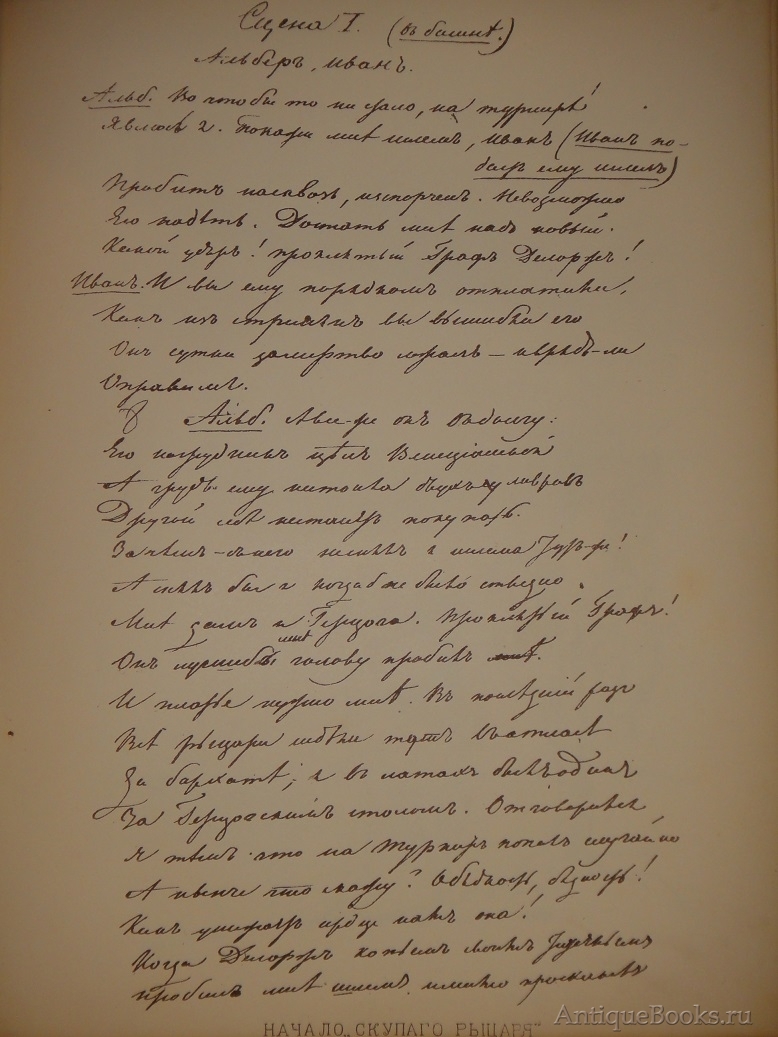 Сцена I. (въ башнѣ.)
Альберъ, Иванъ.
Альб. Во что бы то ни стало, на турнирѣ
Явлюсь я. Покажи мнѣ шлемъ, Иванъ (Иванъ по-
даетъ ему шлемъ)
Пробитъ насквозь, испорченъ. Невозможно
Его надѣть. Достать мнѣ надо новый.
Какой ударъ! проклятый Графъ Делоржъ!
Иванъ. И вы ему порядкомъ отплатили,
Какъ изъ стремянъ вы вышибли его
Онъ сутки замертво лежалъ – и врядъ-ли
Оправился.
Альб. А все-же онъ въ
Его нагрудникъ цѣлъ Венеціанскій
А грудь своя: гроша ему не
Другой себѣ не станетъ покупать.
Зачѣмъ съ него не снялъ я шлема тутъ-же!
А снялъ бы я когда бъ не было стыдно
Мнѣ дамъ и Герцога. Проклятый Графъ!
Онъ лучше бы мнѣ голову пробилъ
И платье нужно мнѣ. Въ послѣдній разъ
Всѣ рыцари сидѣли тутъ въ атласѣ
Да бархатѣ; я въ латахъ былъ одинъ
За Герцогскимъ столомъ. Отговорился
Я тѣмъ что на турниръ попалъ случайно
А нынче что скажу? О бѣдность, бѣдность!
Какъ унижаетъ сердце намъ она!
Когда Делоржъ копьемъ своимъ тяжелымъ
Пробилъ мнѣ шлемъ и мимо проскакалъ
НАЧАЛО „СКУПАГО РЫЦАРЯ“
AntiqueBooks.ru